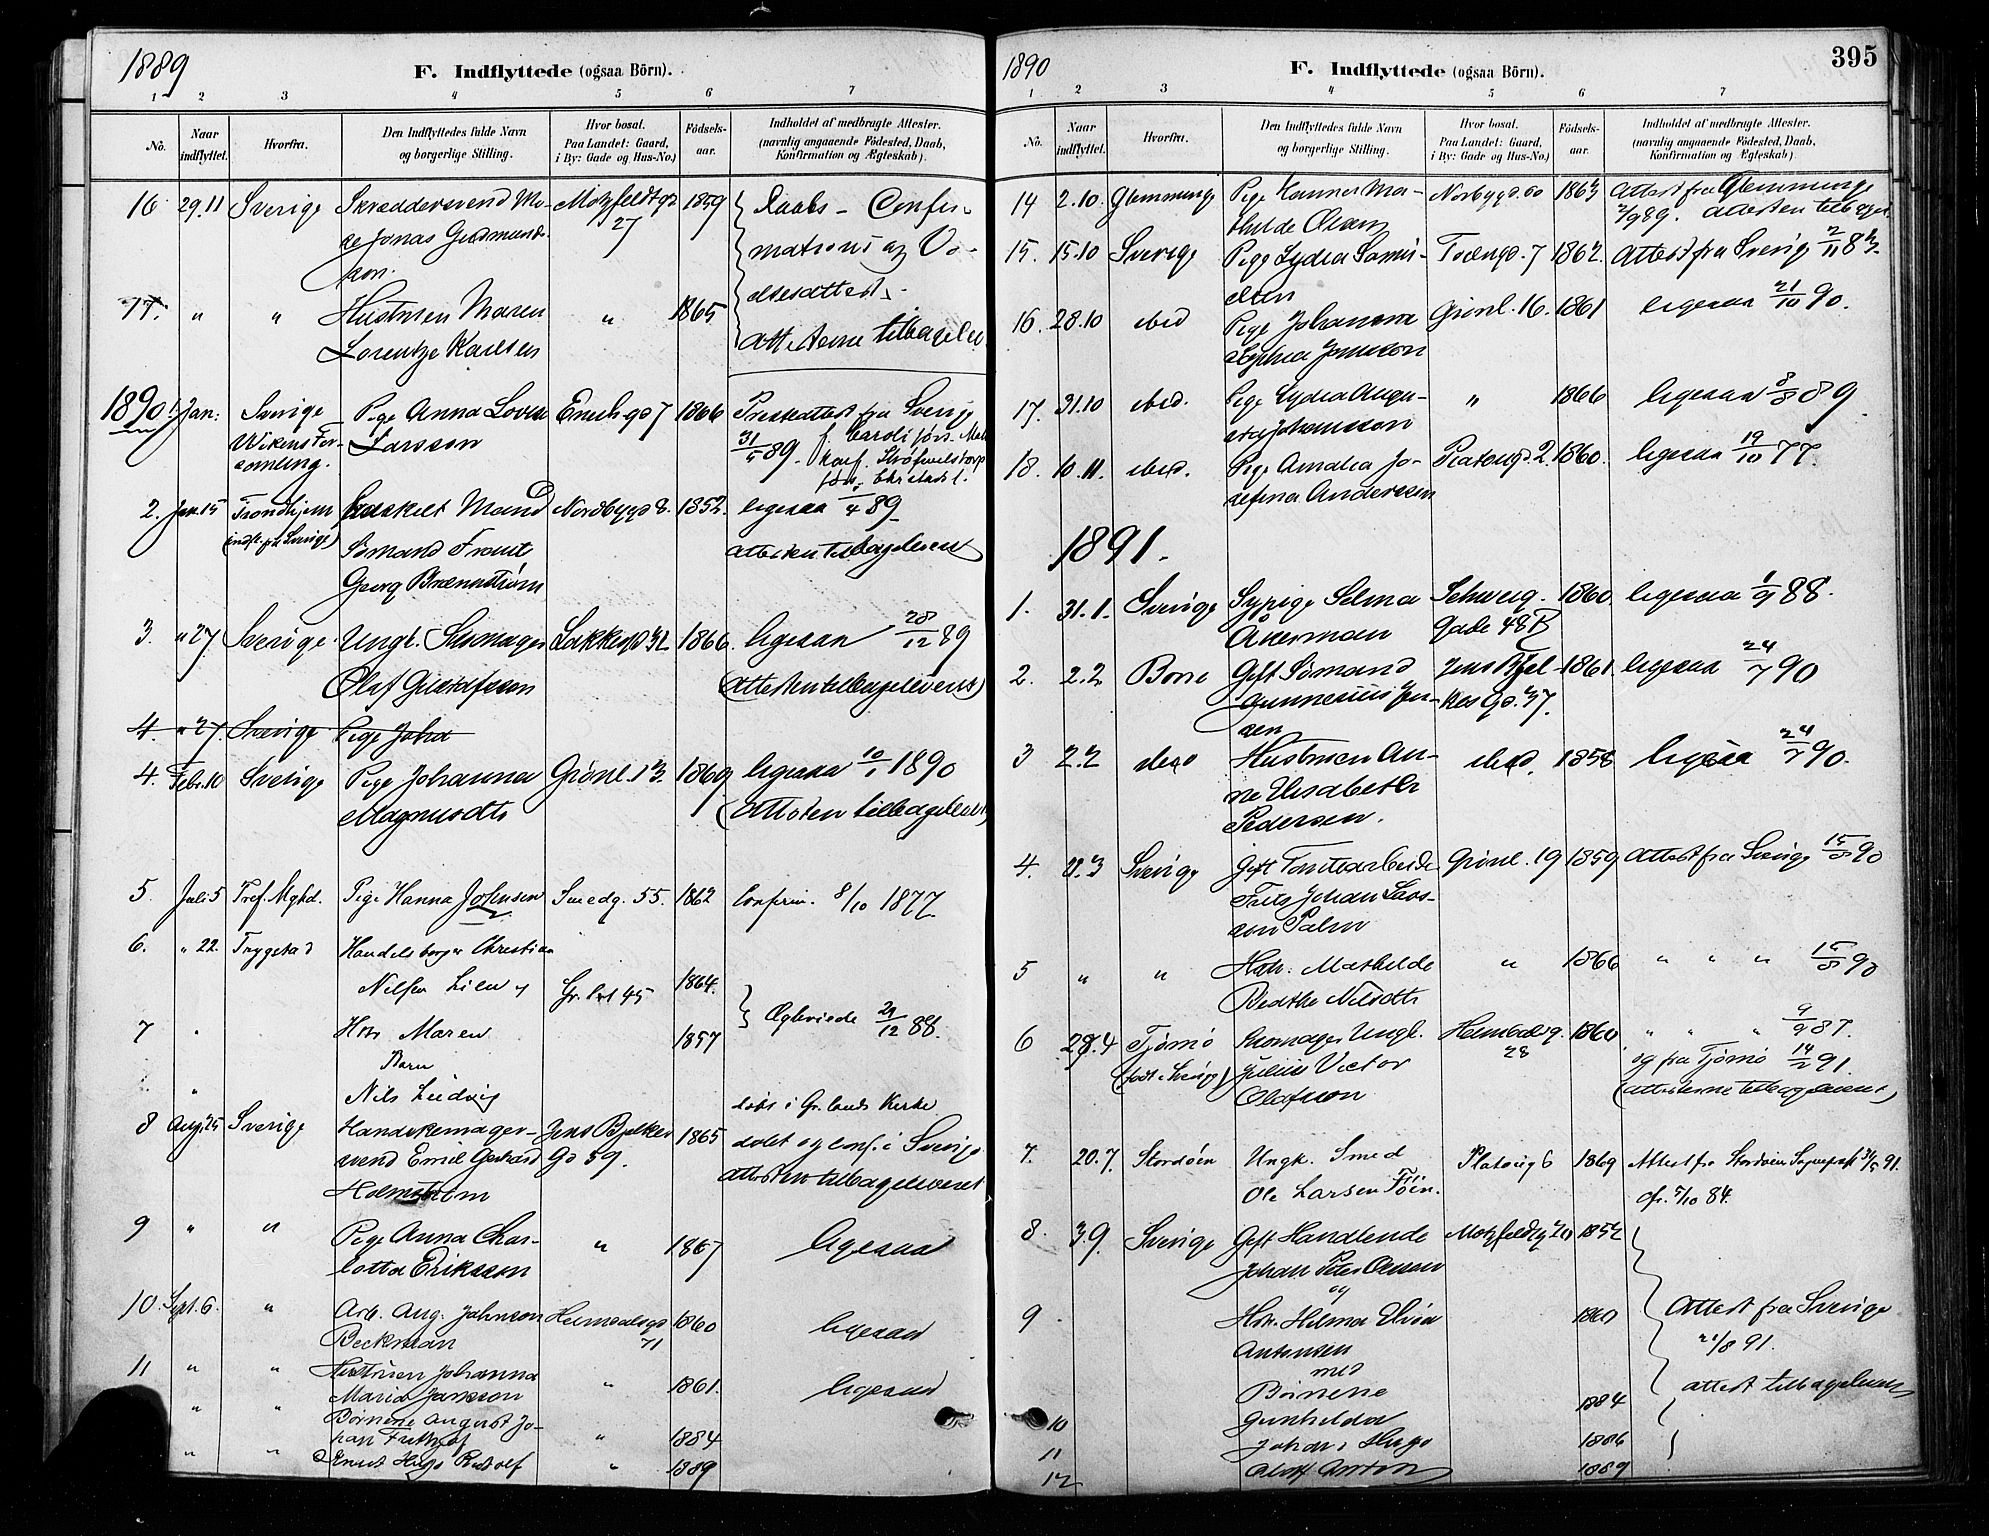 1889
F. Indflyttede (ogsaa Börn).
1 2 3 4 5 6 7
No.
Naar indflyttet.
Hvorfra.
Den Indflyttedes fulde Navn og borgerlige Stilling.
Hvor bosat. Paa Landet: Gaard, i By: Gade og Hus-No.)
Födsels-aar.
Indholdet af medbragte Attester. (navnlig angaaende Födested, Daab, Konfirmation og Ægteskab).
16 29.11 Sverige Skræddersvend 1859 Daabs- Confir-
27 mations og
Hustruen Maren " 1865
Lorentze Karlsen Attesterne
1890 1 Jan: Sverige Pige Anna Lovisa 1866 Presteattest fra Sverige
Larsson 31/5 89.
2. Jan. 15 Trondhjem Mand Nordbygd 8. 1852. ligesaa 1/4 89
(indfl. fra Sverige) Sømand
Georg Brennström
3. " 27 Sverige Ungk. Skomager Lakkegd 32 1866. ligesaa 28/12 89
Olaf Gustafsson (Attesten tilbageleveret)
4. " 27. Sverige Pige Joha
4. Febr. 10 Sverige Pige Johanna Grönl. 13 1869 ligesaa 10/1 1890
Magnusdtr (Attesten tilbageleveret)
5. Juli 5 Tref. Mghd. Pige Hanna Johnsen Smedg. 55. 1862 Confirm. 8/10 1877
6. " 22. Trygstad Handelsborger Christian
Nilsen Lien og Gr. lrt 45 1864.
7 " Hstr Maren 1857 Ægteviede 29/12 88.
Barn
" Nils Ludvig döbt i Gr.lands Kirke
8 Aug. 25 Sverige Handskemager- Jens Bjelkes 1865 döbt og conf. i Sverige
svend Emil Gerhard Gd 59. attesten tilbageleveret
Holmström
9 " " Pige Anna Char- " 1867 ligesaa
lotta Eriksson
10. Sept. 6. " Arb. Aug. Johnson Heimdalsgd 1860 ligesaa
Beckman 71
11 " " Hustruen Johanna " 1861. ligesaa
Maria Jansson
" Börnene August Jo-
han Frithjof " 1884
" " Knut Hugo Rudolf " 1889
1890
F. Indflyttede (ogsaa Börn).
395
1 2 3 4 5 6 7
No.
Naar indflyttet.
Hvorfra.
Den Indflyttedes fulde Navn og borgerlige Stilling.
Hvor bosat. Paa Landet: Gaard, i By: Gade og Hus-No.)
Födsels-aar.
Indholdet af medbragte Attester. (navnlig angaaende Födested, Daab, Konfirmation og Ægteskab).
14 2.10. Glemminge Pige Hanna Ma- Norbygd. 60 1863 Attest fra Glemminge
thilde Olsen 2/9 89. Attesten
15. 15.10 Sverige Pige Lydia Samu- 1862. Attest fra Sverige
elsen
16. 28.10 ibid Pige Johanna Grönl. 16. 1861 ligesaa 21/10 90.
Sophia Jonsson
17. 31.10 ibid. Pige Lydia Augu- " 1866 ligesaa 8/8 89
sta Johansson
18. 10.11. ibid. Pige Amalia Jo- Platougd. 2. 1860. ligesaa 19/10 77.
sefina Andersson
1891.
1. 31.1. Sverige Sypige Selma Schweig- 1860. ligesaa 1/9 88.
Åkerman gade 48B
2. 2.2 Borre Gift Sømand Jens Bjel- 1861. ligesaa 24/7 90
Gunnerius Jen- kes Gd. 37.
sen
3 2.2 ibid Hustruen An- ibid. 1858 ligesaa 24/7 90.
ne Elisabeth
Pedersen.
4. 11.3 Sverige Gift Tomtearbeider Grönl. 19 1859 Attest fra Sverige 15/8 90
Frits Johan Lars-
son Palm
5 " " Hstr. Mathilde " 1866 " " " 15/8 90
Beathe Nilsdtr
6 28.4 Tjømø Skomager Ungk. Heimdalsg. 1860 " " " 9/9 87.
(født i Sverige) Julius Victor 28 og fra Tjømø 14/2 91.
Olafsson (attesterne tilbageleveret)
7. 20.7. Stordøen Ungk. Smed Platoug 6 1869 Attest fra Stordøen Sognepr. 31/5 91.
Ole Larsen Föin. 5/10 84.
8. 3.9. Sverige Gift Handlende Motzfeldtg 20 1852
Johan Peter Olsson
og
9 Hstr. Hilma Elvira 1860 Attest fra Sverige
Antonsen 21/8 91.
med attest tilbageleveret
Börnene
10 Gunhilda 1884
11 Johan Hugo 1886
12 Olof Anton 1889